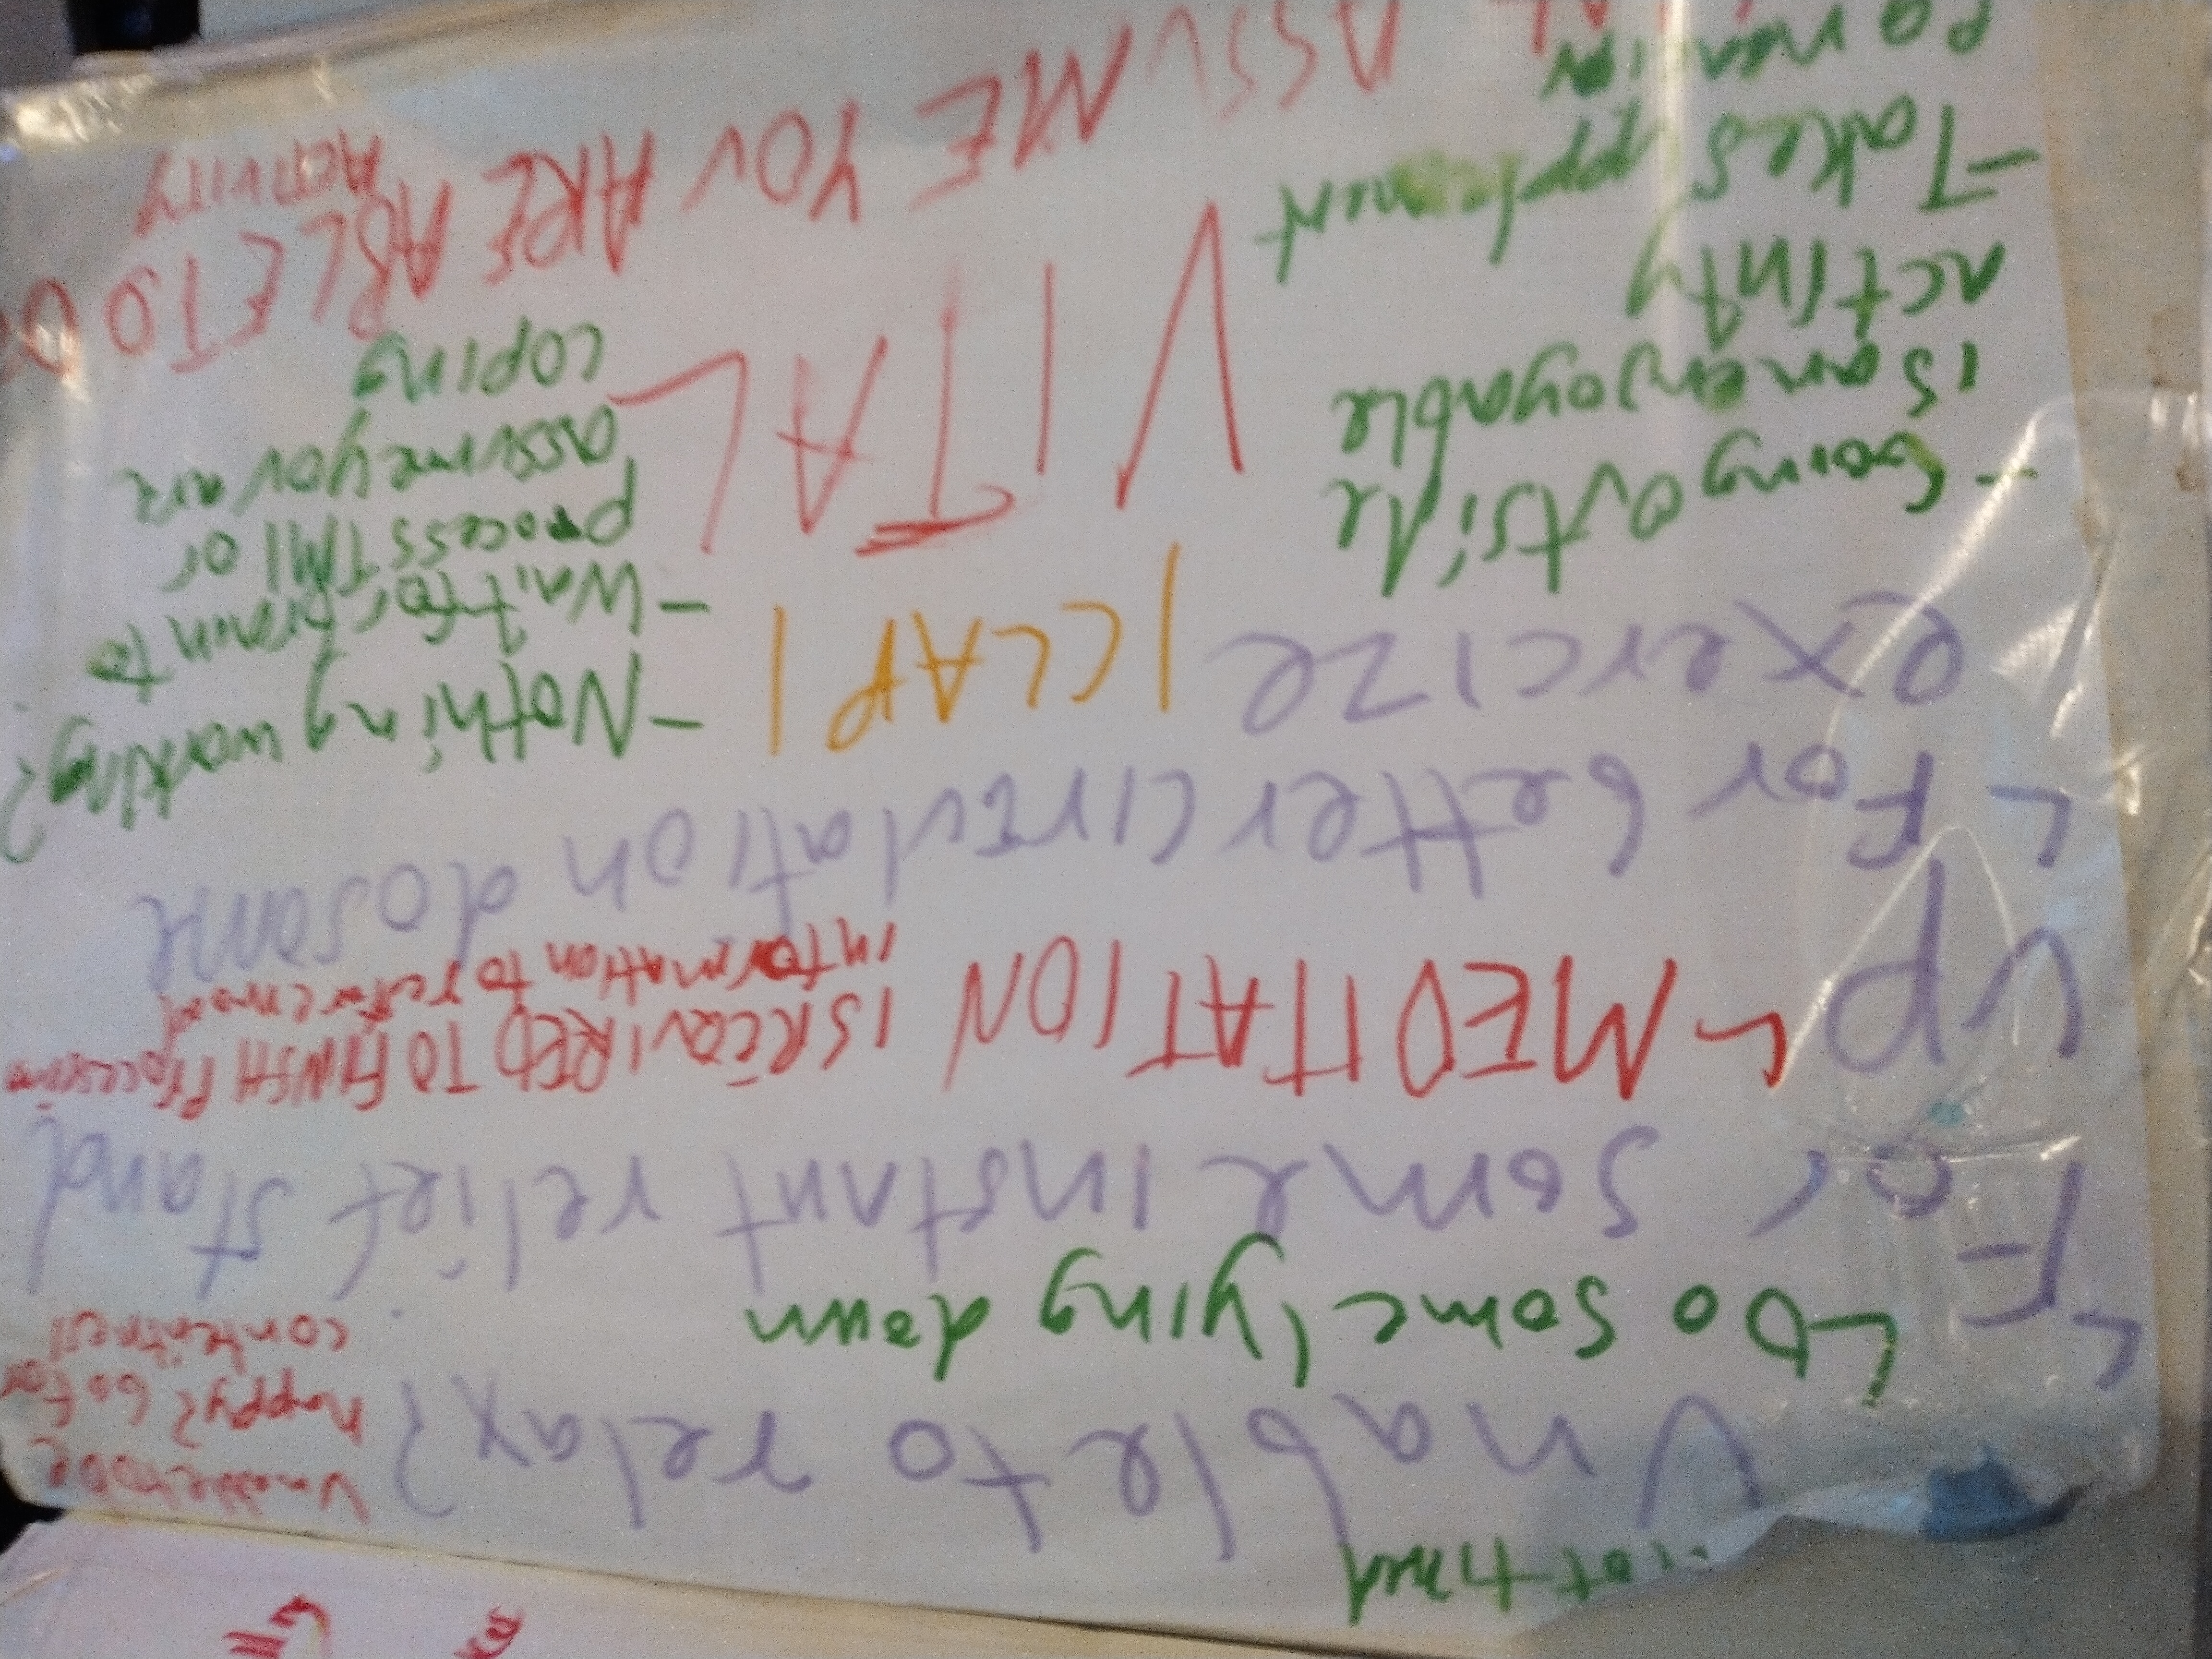 Not tired
Unable to relax?
Unable to be
happy? Go for
contentment
↳ Do some lying down
↳ For some instant relief stand
up
↳ MEDITATION IS REQUIRED TO FINISH PROCESSING
information to
↳ For better circulation do some
exercize
ICLAPI
- Nothing working?
- Wait for brain to
process TMI or
assume you are
coping
- Going outside
is an enjoyable
activity
VITAL
- Takes
ASSUME YOU ARE ABLE TO DO
ACTIVITY